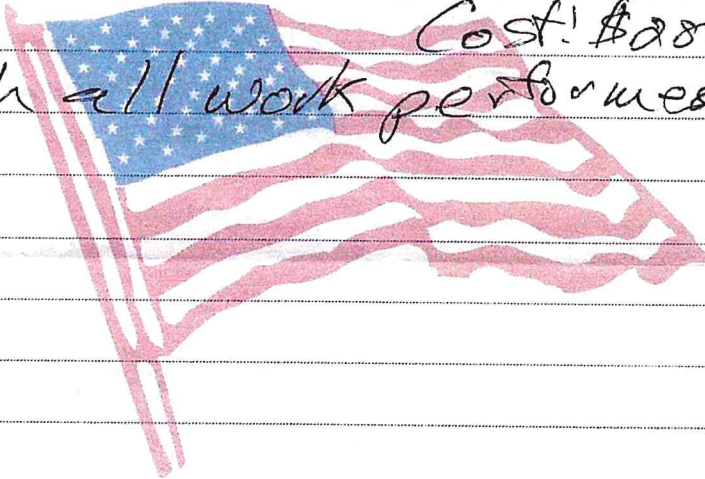 Cost: $28
all work performed